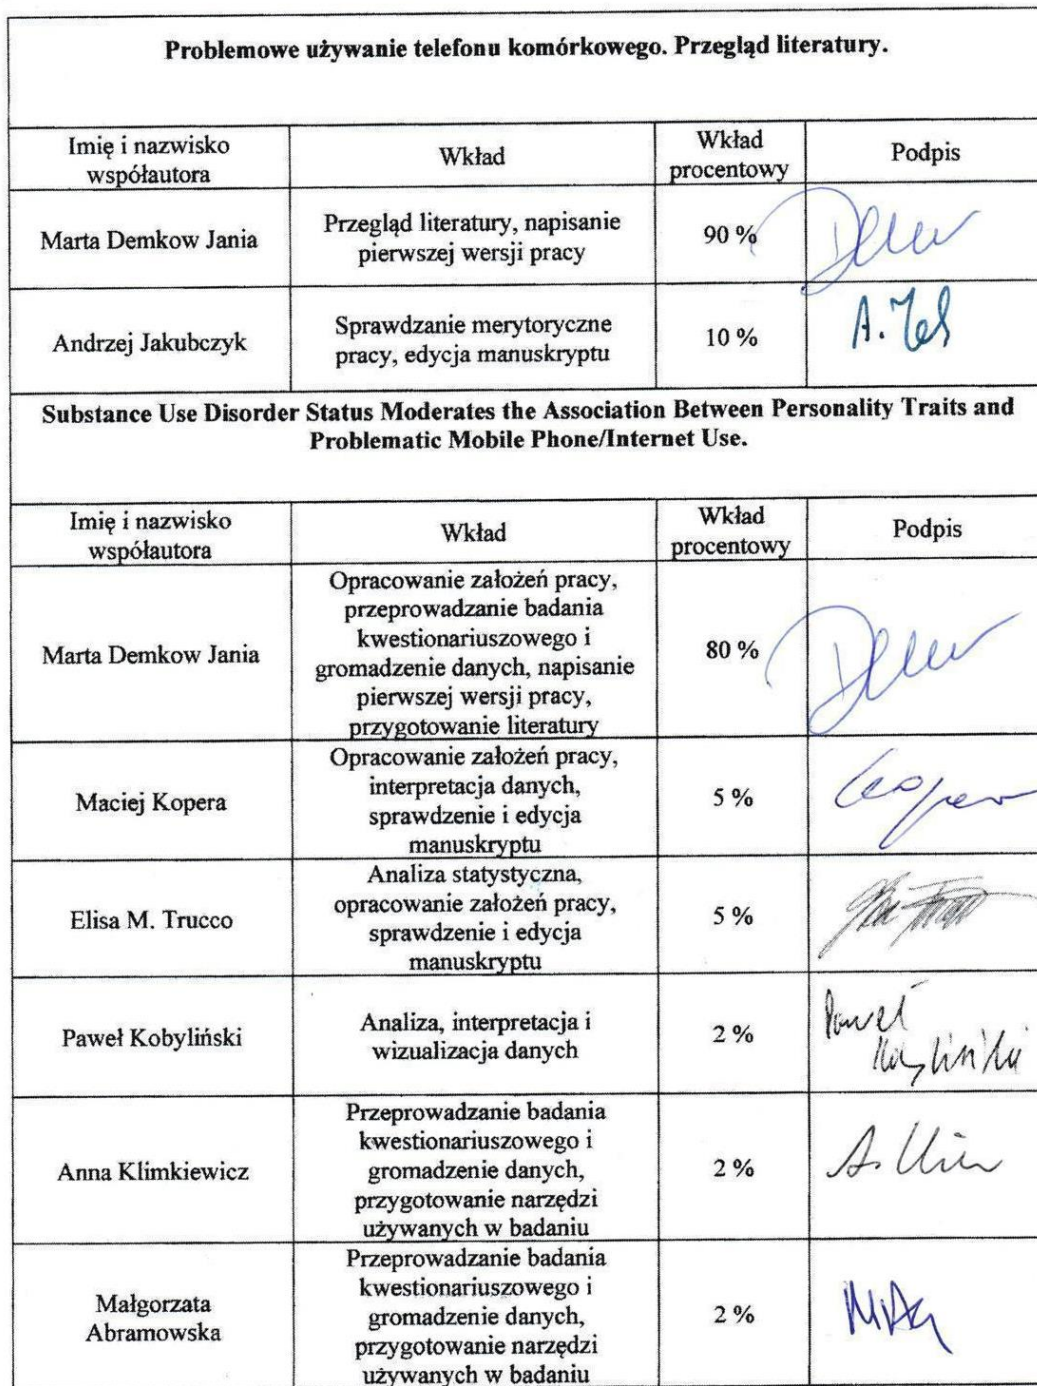 Problemowe używanie telefonu komórkowego. Przegląd literatury.
Imię i nazwisko
współautora
Wkład
Wkład
procentowy
Podpis
Marta Demkow Jania
Przegląd literatury, napisanie
pierwszej wersji pracy
90 %
Andrzej Jakubczyk
Sprawdzanie merytoryczne
pracy, edycja manuskryptu
10 %
Substance Use Disorder Status Moderates the Association Between Personality Traits and
Problematic Mobile Phone/Internet Use.
Imię i nazwisko
współautora
Wkład
Wkład
procentowy
Podpis
Marta Demkow Jania
Opracowanie założeń pracy,
przeprowadzanie badania
kwestionariuszowego i
gromadzenie danych, napisanie
pierwszej wersji pracy,
przygotowanie literatury
80 %
Maciej Kopera
Opracowanie założeń pracy,
interpretacja danych,
sprawdzenie i edycja
manuskryptu
5 %
Elisa M. Trucco
Analiza statystyczna,
opracowanie założeń pracy,
sprawdzenie i edycja
manuskryptu
5 %
Paweł Kobyliński
Analiza, interpretacja i
wizualizacja danych
2 %
Paweł
Kobyliński
Anna Klimkiewicz
Przeprowadzanie badania
kwestionariuszowego i
gromadzenie danych,
przygotowanie narzędzi
używanych w badaniu
2 %
Małgorzata
Abramowska
Przeprowadzanie badania
kwestionariuszowego i
gromadzenie danych,
przygotowanie narzędzi
używanych w badaniu
2 %